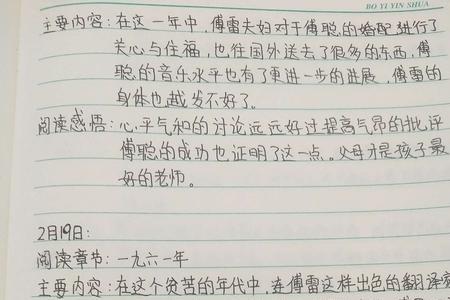 BO YI YIN SHUA
主要内容：在这一年中，傅雷夫妇对于傅聪的婚配进行了
关心与住福，也往国外送去了很多的东西，傅
聪的音乐水平也有了更进一步的进展，傅雷的
身体也越发不好了。
阅读感悟：心平气和的讨论远远好过提高气昂的批评
傅聪的成功也证明了这一点。父母才是孩子最
好的老师。
2月19日：
阅读章节：一九六一年
主要内容：在这个贫苦的年代中，连傅雷这样出色的翻译家